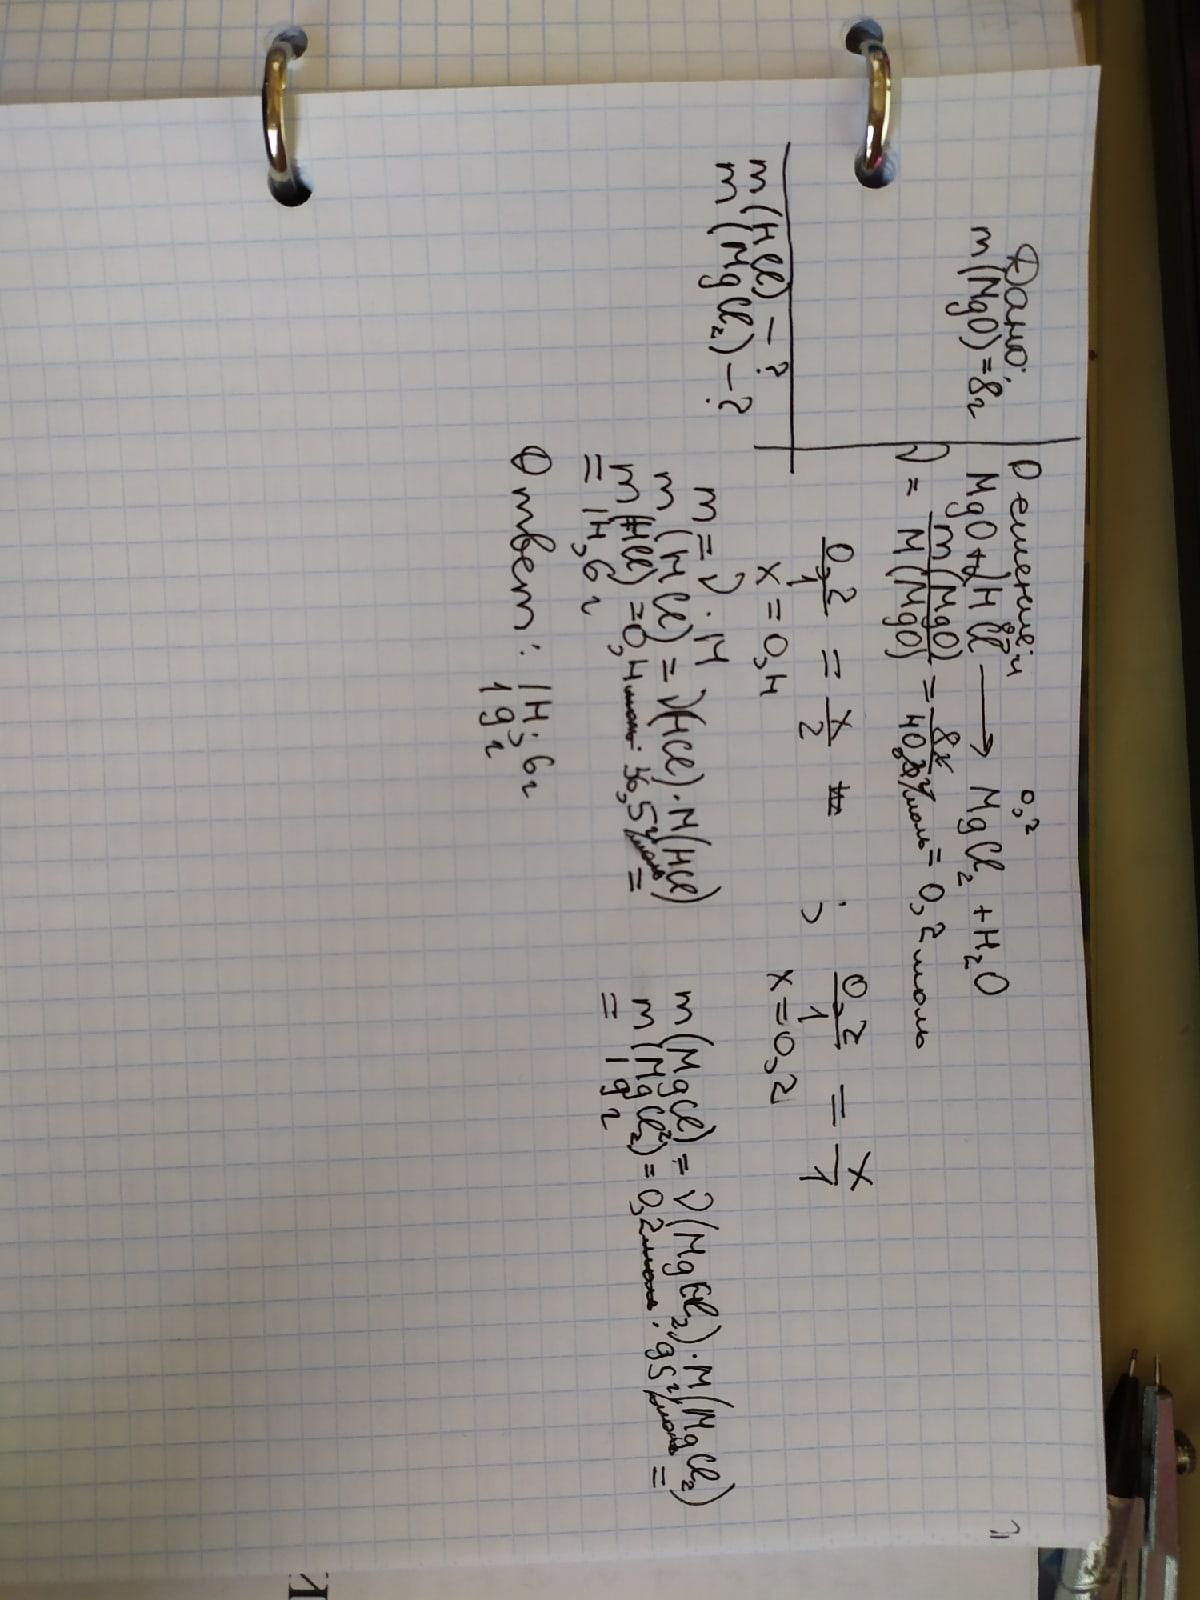 Дано:
m(MgO)=8г
m(HCl) – ?
m(MgCl₂) – ?
Решение:
0,2
MgO + 2HCl → MgCl₂ + H₂O
ν = m(MgO)/M(MgO) = 8г/40г/моль = 0,2 моль
0,2/1 = x/2 ; 0,2/1 = x/1
x = 0,4 x = 0,2
m = ν · M
m(HCl) = ν(HCl) · M(HCl)
m(HCl) = 0,4моль · 36,5г/моль =
= 14,6 г
m(MgCl₂) = ν(MgCl₂) · M(MgCl₂)
m(MgCl₂) = 0,2моль · 95г/моль =
= 19 г
Ответ: 14,6г
19 г
И